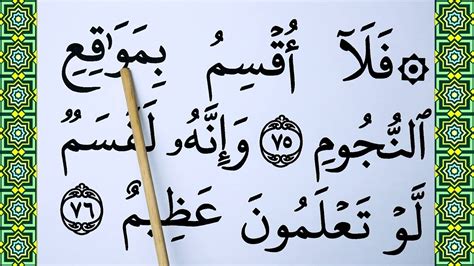 ۞ فَلَآ أُقْسِمُ بِمَوَٰقِعِ
ٱلنُّجُومِ ٧٥ وَإِنَّهُۥ لَقَسَمٌۭ
لَّوْ تَعْلَمُونَ عَظِيمٌ ٧٦